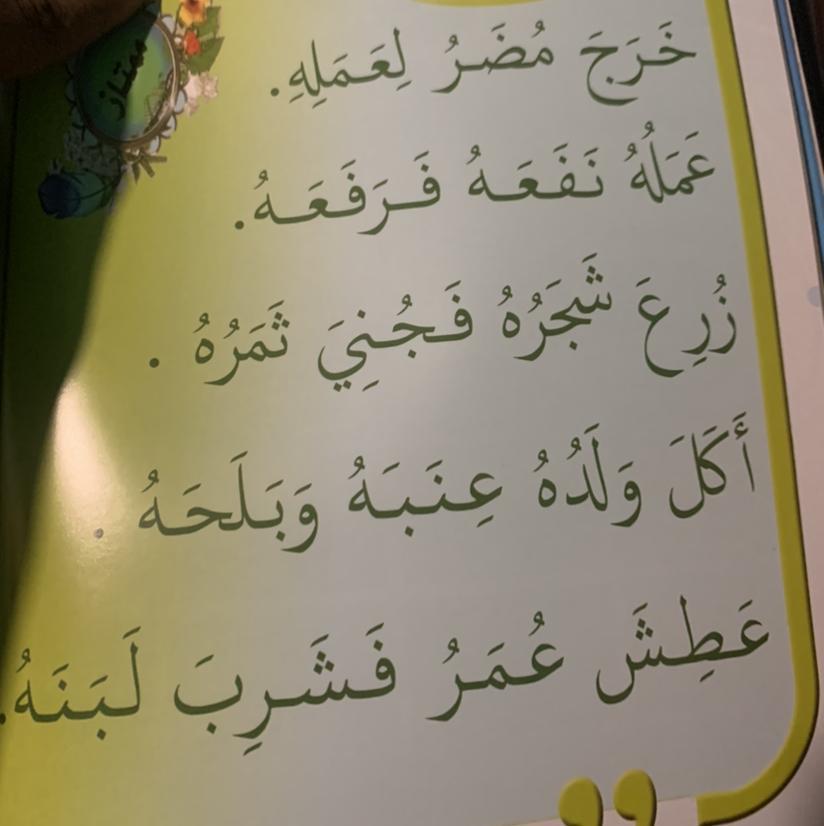 ممتاز
خَرَجَ مُضَرُ لِعَمَلِهِ.
عَمَلُهُ نَفَعَهُ فَرَفَعَهُ.
زُرِعَ شَجَرُهُ فَجُنِيَ ثَمَرُهُ .
أَكَلَ وَلَدُهُ عِنَبَهُ وَبَلَحَهُ .
عَطِشَ عُمَرُ فَشَرِبَ لَبَنَهُ.